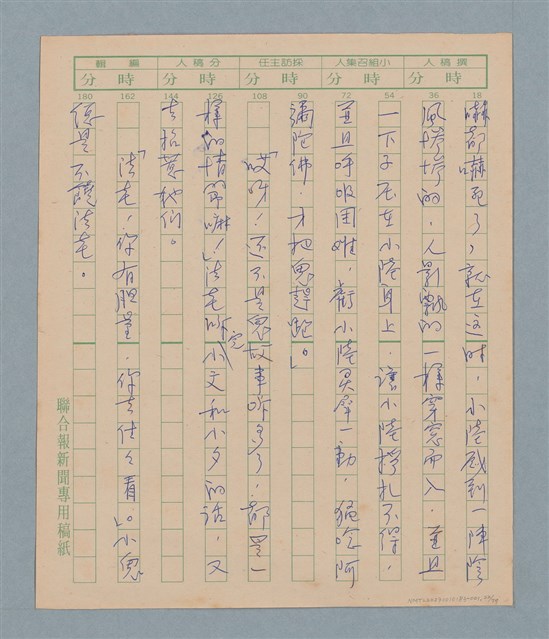 撰稿人 小組召集人 採訪主任 分稿人 編輯
時 分 時 分 時 分 時 分 時 分
18 36 54 72 90 108 126 144 162 180
嚇都嚇死了，就在這時，小陸感到一陣陰
風慘慘的，人影飄飄的一樣穿窗而入，並且
一下子压在小陸身上，讓小陸掙扎不得，
並且呼吸困难，虧小陸灵犀一動，猛唸阿
彌陀佛，才把鬼趕跑。」
「哎呀！还不是鬼故事听多了，都是一
樣的情節嘛！」法毛听完小文和小夕的話，又
去招惹他们。
「法毛！你有胆量，你去住住看。」小鬼
總是不饒法毛。
聯合報新聞專用稿紙